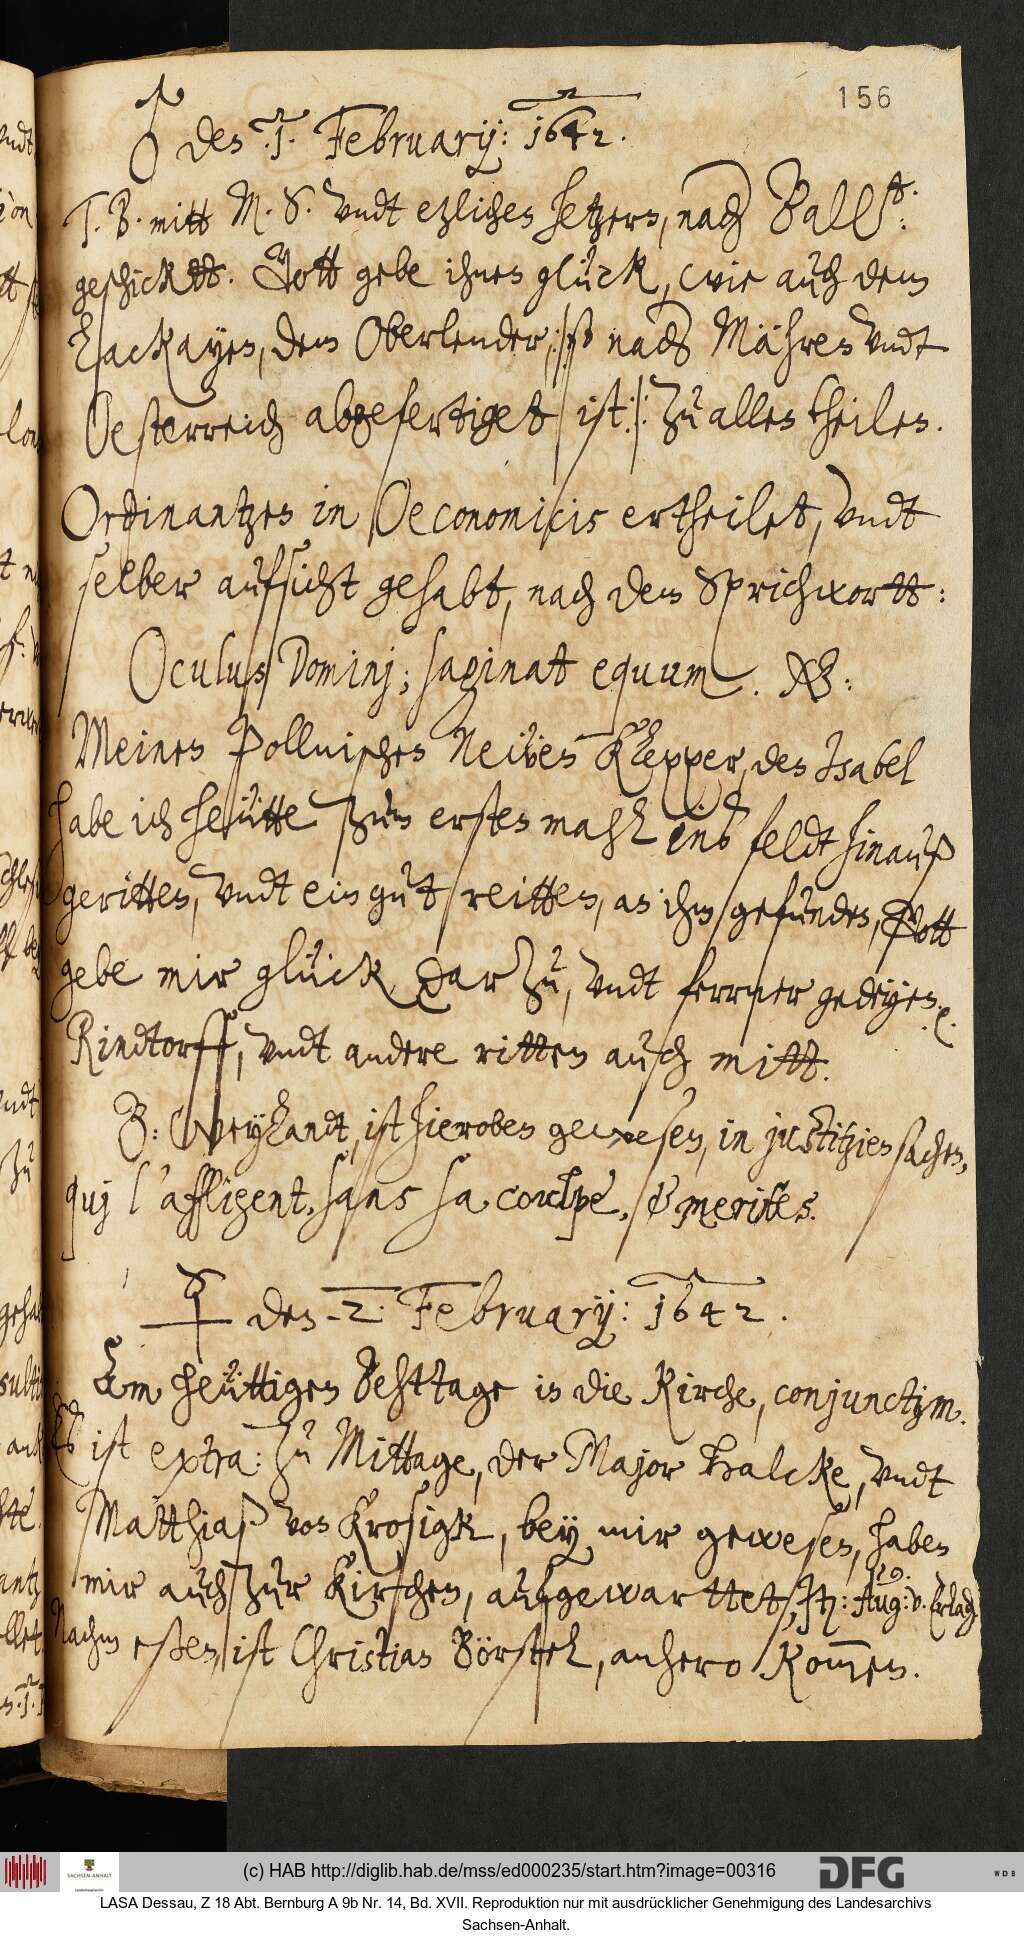 156
♂ den .1. February: 1642.
T. B. mitt M. S. vndt etzlichen hetzern, nach Ballst:
geschicktt. Gott gebe ihnen glück, wie auch dem
Lackayen, dem Oberlender, /: so nach Mähren vndt
Oesterreich abgefertiget ist :/ zu allen theilen.
Ordinantzen in Oeconomicis ertheilet, vndt
selber aufsicht gehabt, nach dem Sprichwortt:
Oculus Dominj; saginat equum. NB:
Meinen Pollnischen Neẅen Klepper, den Isabel
habe ich heütte zum ersten mahl ins feldt hinauß
geritten, vndt ein gut reitten, an ihm gefunden, Gott
gebe mir glück darzu, vndt ferrner gedeyen. et cetera
Rindtorff, vndt andere ritten auch mitt.
B: Weylandt, ist hieroben gewesen, in justitzien sachen,
quj l'affligent, sans sa coulpe, & merites.
☿ den 2. February: 1642.
Am heüttigen Festtage in die Kirche, conjunctim.
Es ist extra: zu Mittage, der Major Halcke, vndt
Matthiaß von Krosigk, bey mir gewesen, haben
mir auch zur Kirchen, aufgewarttet, It: Aug: v. Erlach
Nachm eßen, ist Christian Börstel, anhero kommen.
(c) HAB http://diglib.hab.de/mss/ed000235/start.htm?image=00316
SACHSEN-ANHALT
DFG
WDB
LASA Dessau, Z 18 Abt. Bernburg A 9b Nr. 14, Bd. XVII. Reproduktion nur mit ausdrücklicher Genehmigung des Landesarchivs
Sachsen-Anhalt.